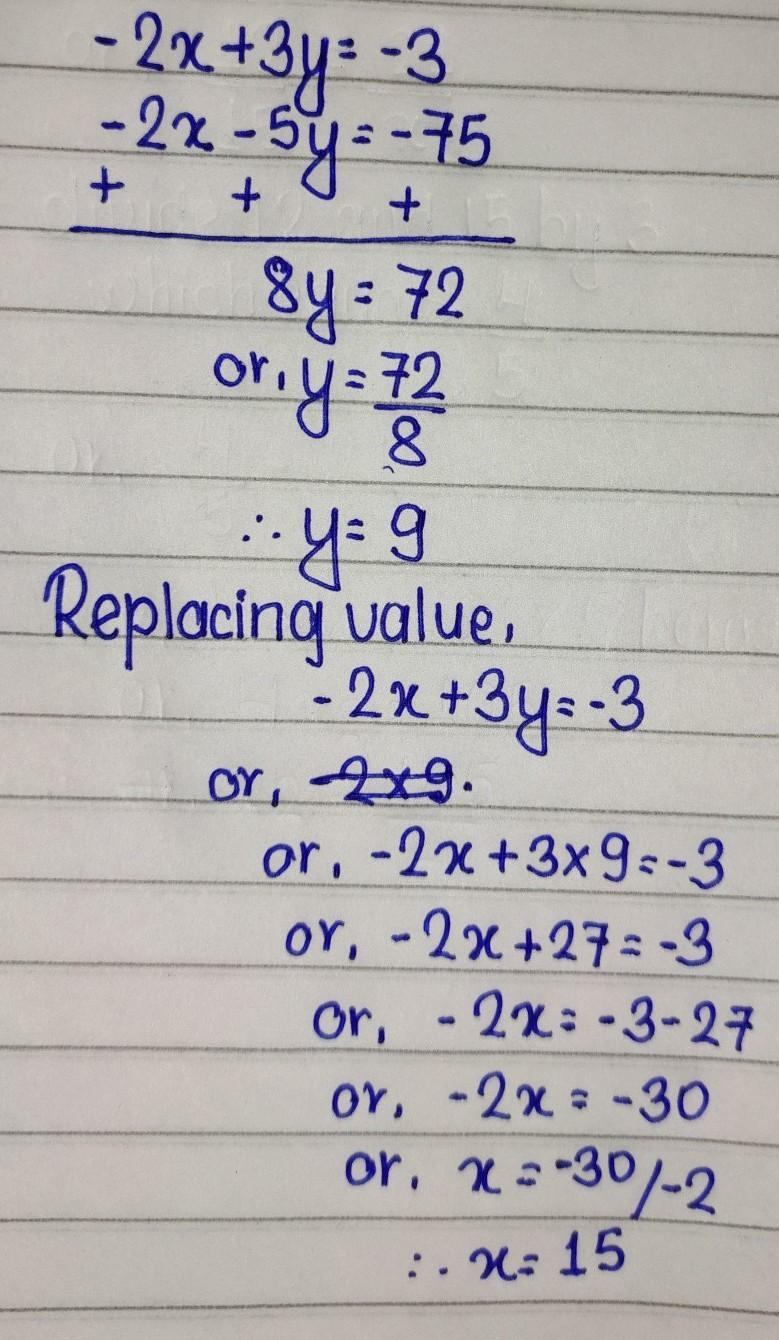 -2x+3y=-3
-2x-5y=-75
+ + +
8y=72
or, y=72/8
∴ y=9
Replacing value,
-2x+3y=-3
or, -2x9.
or, -2x+3x9=-3
or, -2x+27=-3
or, -2x=-3-27
or, -2x=-30
or, x=-30/-2
∴ x=15